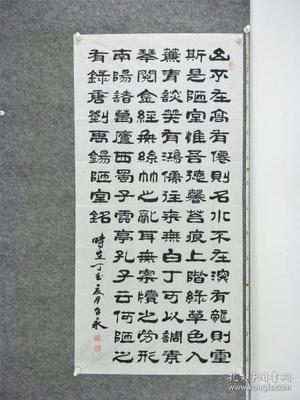 山不在高有僊則名水不在深有龍則靈
斯是陋室惟吾德馨苔痕上階綠草色入
簾青談笑有鴻儒往來無白丁可以調素
琴閱金經無絲竹之亂耳無案牘之勞形
南陽諸葛廬西蜀子雲亭孔子云何陋之
有錄唐劉禹錫陋室銘
時在丁亥夏月